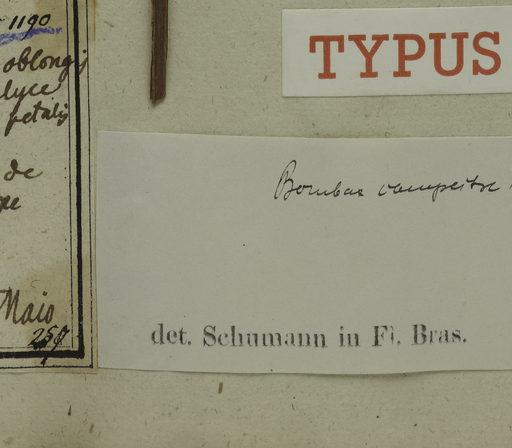 1190
oblongis
petalis
de
Maio
257
TYPUS
Bombax campestre
det. Schumann in Fl. Bras.